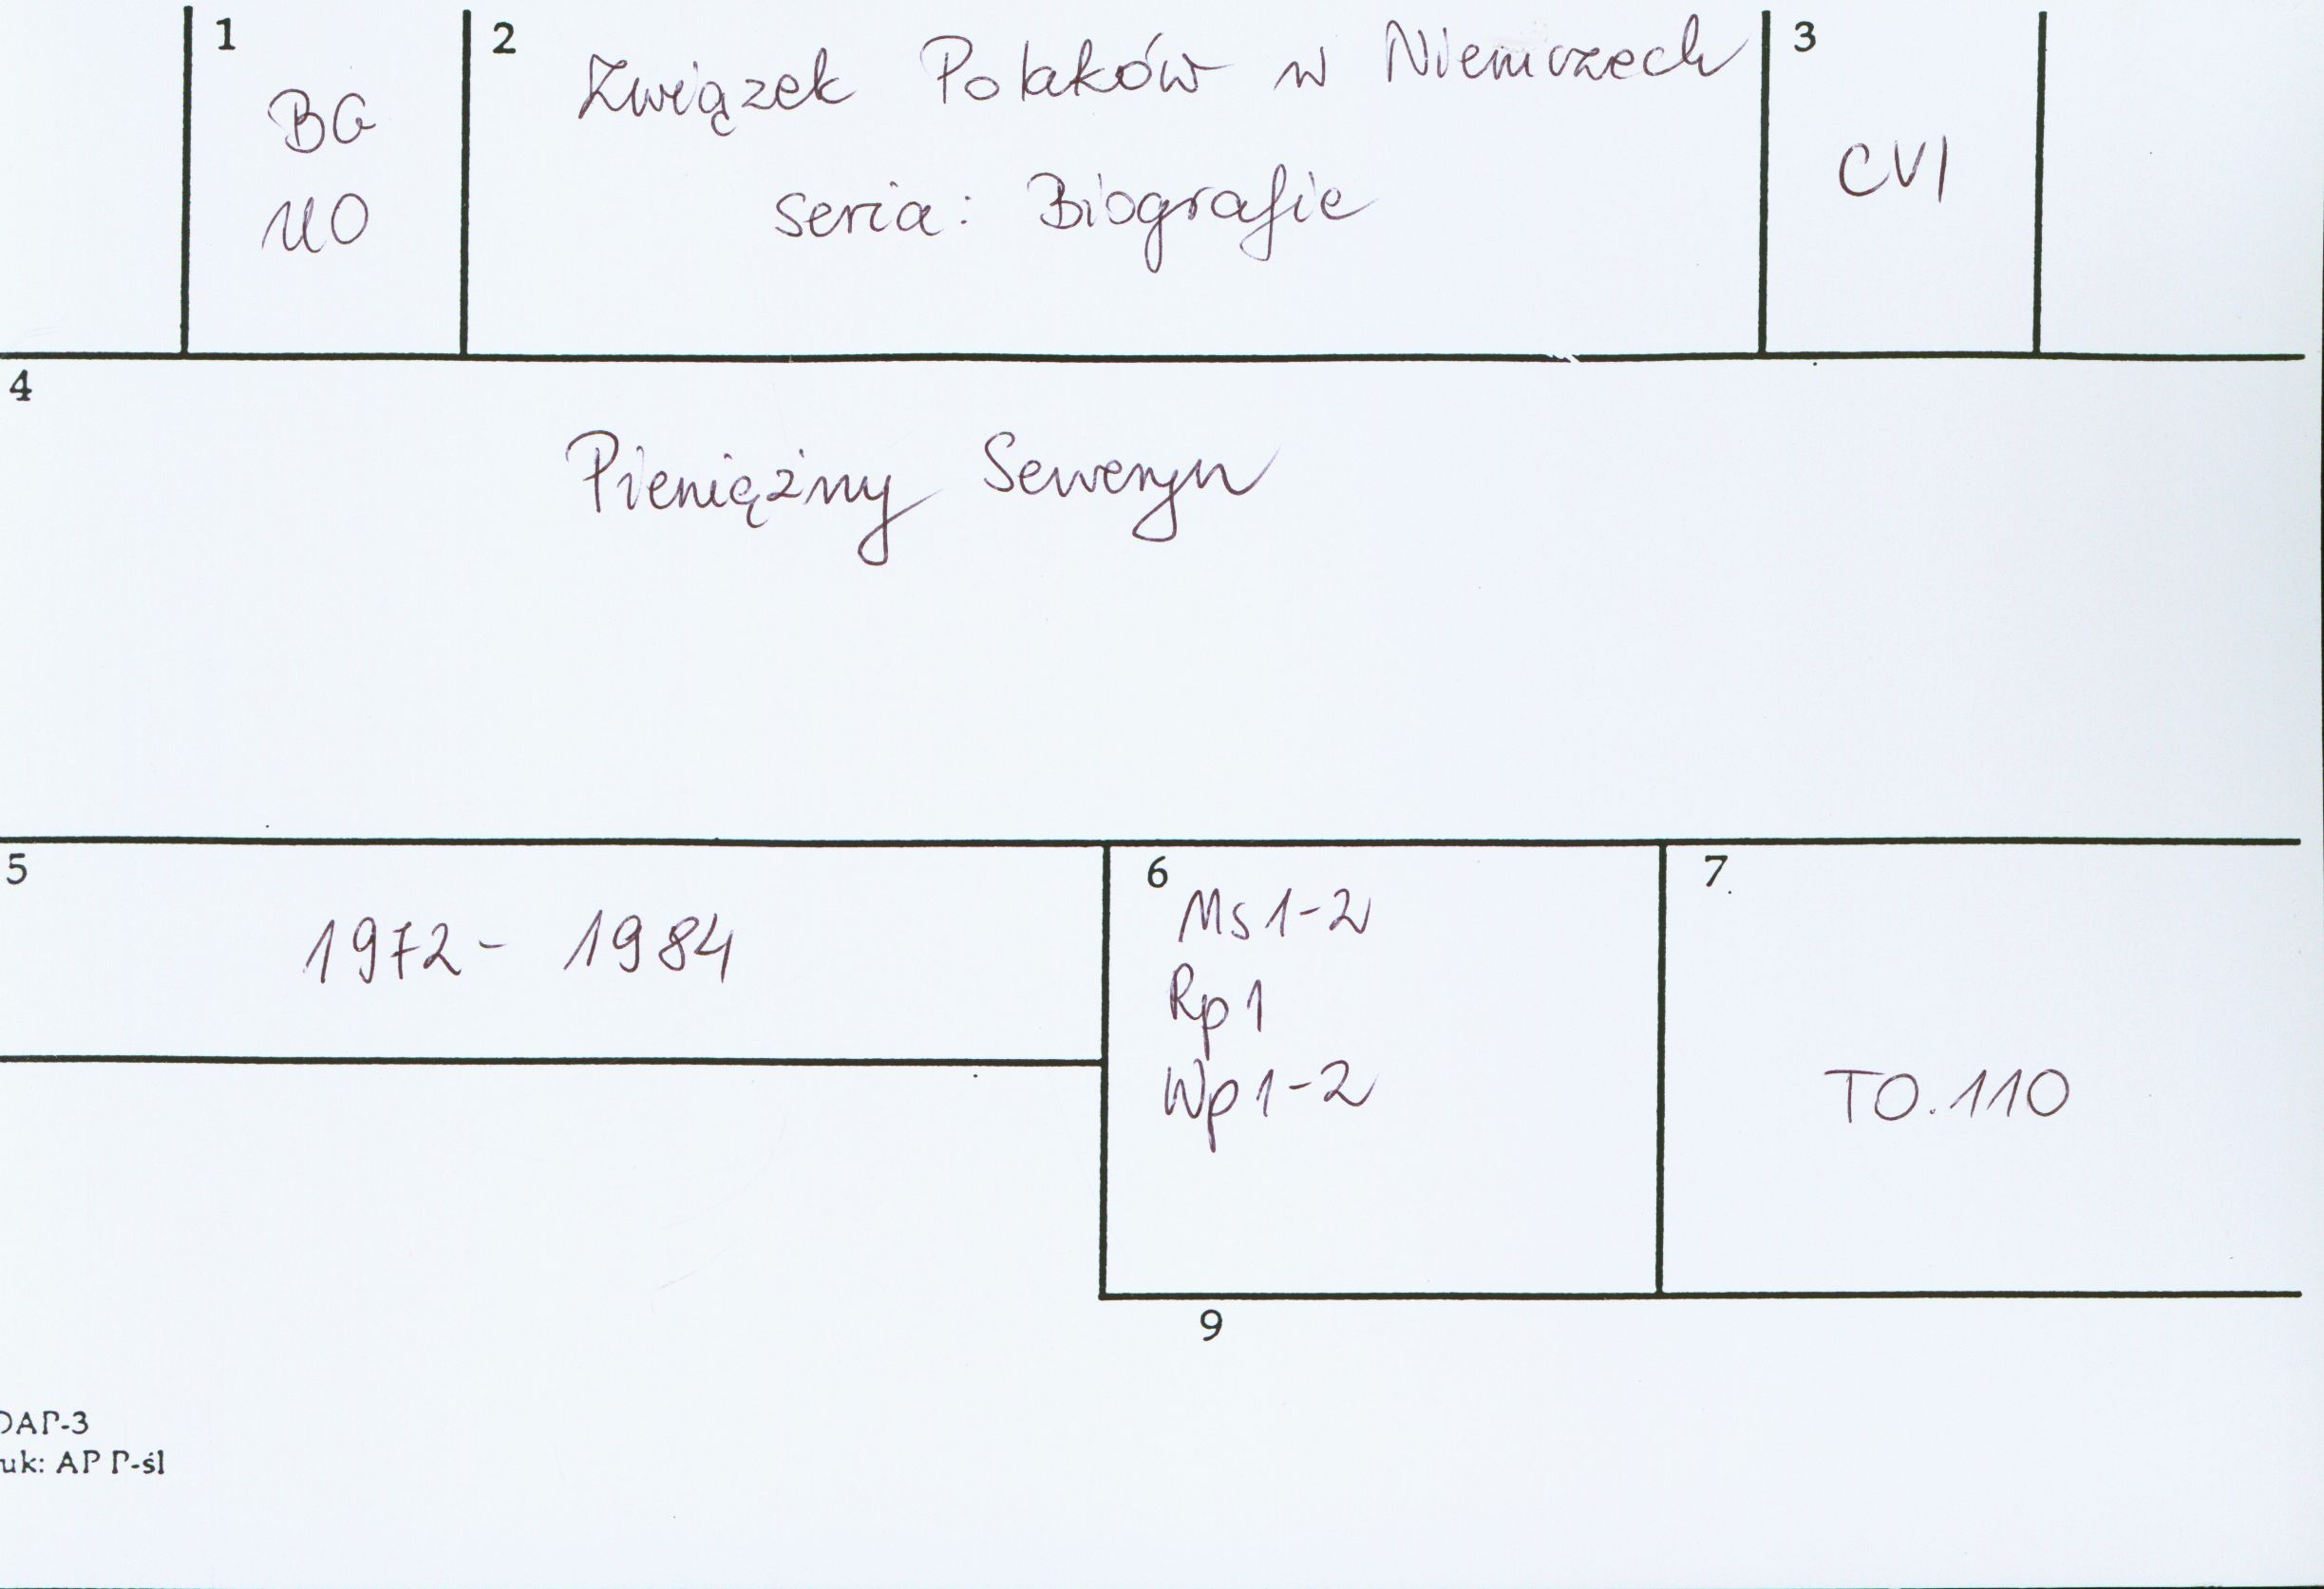 1
BG
UO
2
Związek Polaków w Niemczech
seria: Biografie
3
CVI
4
Pieniężny Seweryn
5
1972 - 1984
6
Ms 1-2
Rp 1
Wp 1-2
7
TO.110
9
DAP-3
uk: AP P-śl